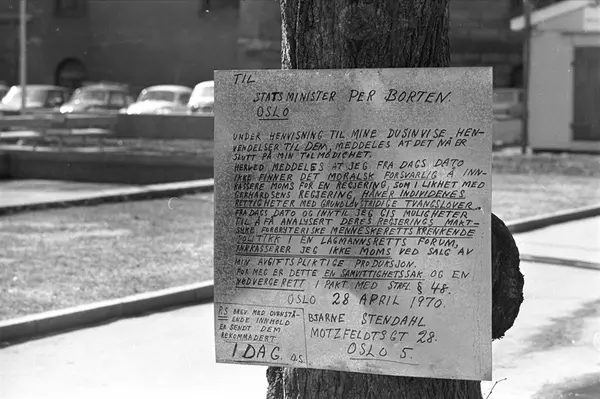 TIL
STATSMINISTER PER BORTEN.
OSLO
UNDER HENVISNING TIL MINE DUSINVISE, HEN-
VENDELSER TIL DEM, MEDDELES AT DET NÅ ER
SLUTT PÅ MIN TOLMODIGHET.
HERVED MEDDELES AT JEG FRA DAGS DATO
IKKE FINNER DET MORALSK FORSVARLIG Å INN-
KASSERE MOMS FOR EN REGJERING, SOM I LIKHET MED
GERHARDSENS REGJERING, HÅNER INDIVIDENES
RETTIGHETER MED GRUNDLOVSTRIDIGE TVANGSLOVER.
FRA DAGS DATO OG INNTIL JEG GIS MULIGHETER
TIL Å FÅ ANALYSERT DERES REGJERINGS MAKT-
SYKE FORBRYTERISKE MENNESKERETTSKRENKENDE
POLITIKK I EN LAGMANNSRETTS FORUM,
INNKASSERER JEG IKKE MOMS VED SALG AV
MIN AVGIFTSPLIKTIGE PRODUKSJON.
FOR MEG ER DETTE EN SAMVITTIGHETSSAK OG EN
NØDVERGERETT I PAKT MED STRFL § 48.
OSLO 28 APRIL 1970.
BJARNE STENDAHL
MOTZFELDTSGT 28.
OSLO 5
P.S BREV MED OVENSTÅ-
ENDE INNHOLD
ER SENDT DEM
REKOMMANDERT
I DAG. D.S.